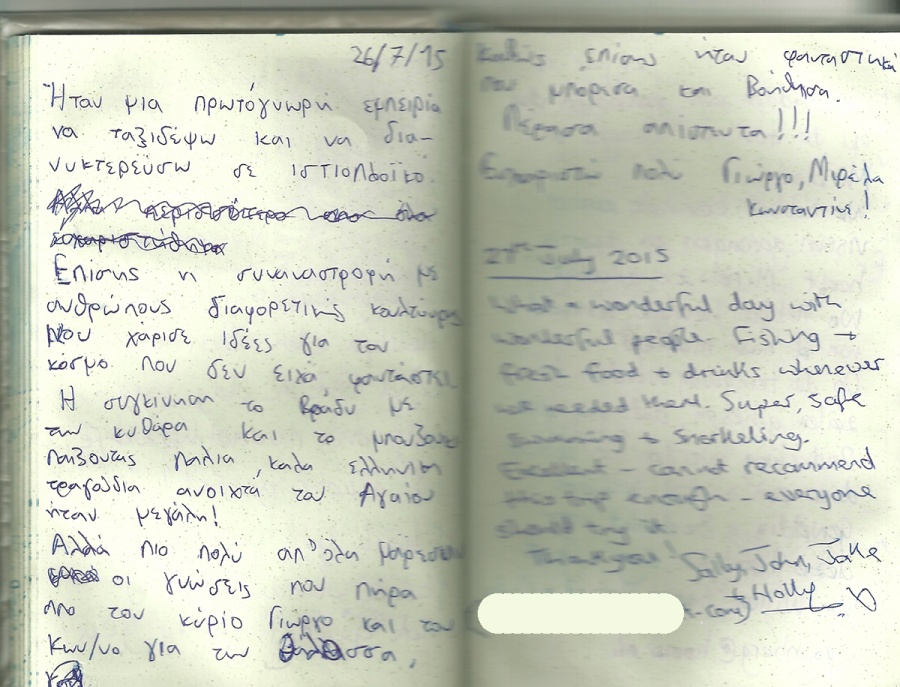 26/7/15
Ήταν μια πρωτόγνωρη εμπειρία
να ταξιδέψω και να δια-
νυκτερεύσω σε ιστιοπλοϊκό.
Επίσης η συναναστροφή με
ανθρώπους διαφορετικής κουλτούρας
μου χάρισε ιδέες για τον
κόσμο που δεν είχα φανταστεί.
Η συγκίνηση το βράδυ με
την κιθάρα και το μπουζούκι
παίζοντας παλιά, καλά ελληνικά
τραγούδια ανοιχτά του Αγαίου
ήταν μεγάλη!
Αλλά πιο πολύ απ' όλα μ'άρεσαν
οι γνώσεις που πήρα
απο τον κύριο Γιώργο και τον
Κων/νο για την θάλασσα,
καθώς επίσης ήταν φανταστικά
που μπόρεσα και βούτηξα.
Πέρασα απίστευτα!!!
Ευχαριστώ πολύ Γιώργο, Μιρέλα
Κωνσταντίνε!
27th July 2015
What a wonderful day with
wonderful people. Fishing +
fresh food + drinks whenever
we needed them. Super, safe
swimming + snorkeling.
Excellent - cannot recommend
this trip enough - everyone
should try it.
Thank you! Sally, John, Jake
+ Holly